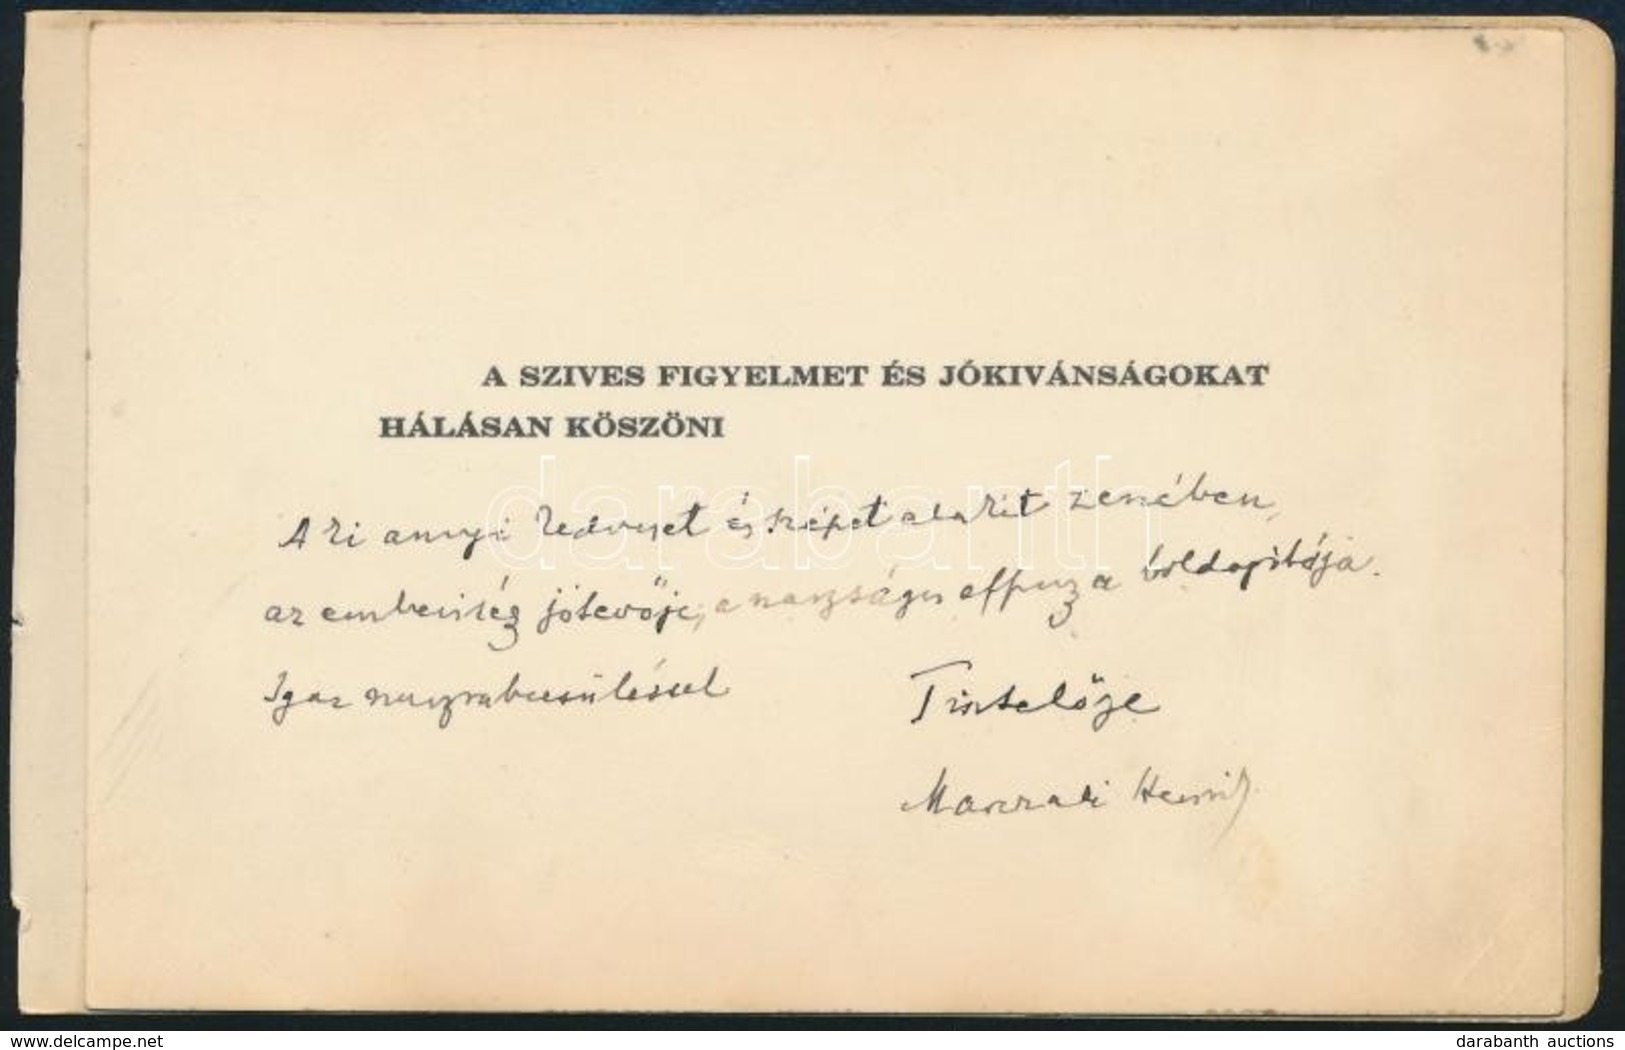 A SZIVES FIGYELMET ÉS JÓKIVÁNSÁGOKAT
HÁLÁSAN KÖSZÖNI
A ki annyi kedveset és szépet alakít zenében,
az emberiség jótevője, a boldogitója.
Igaz nagyrabecsüléssel
Tisztelője
Marczali Henrik
darabanth
www.delcampe.net
darabanth auctions